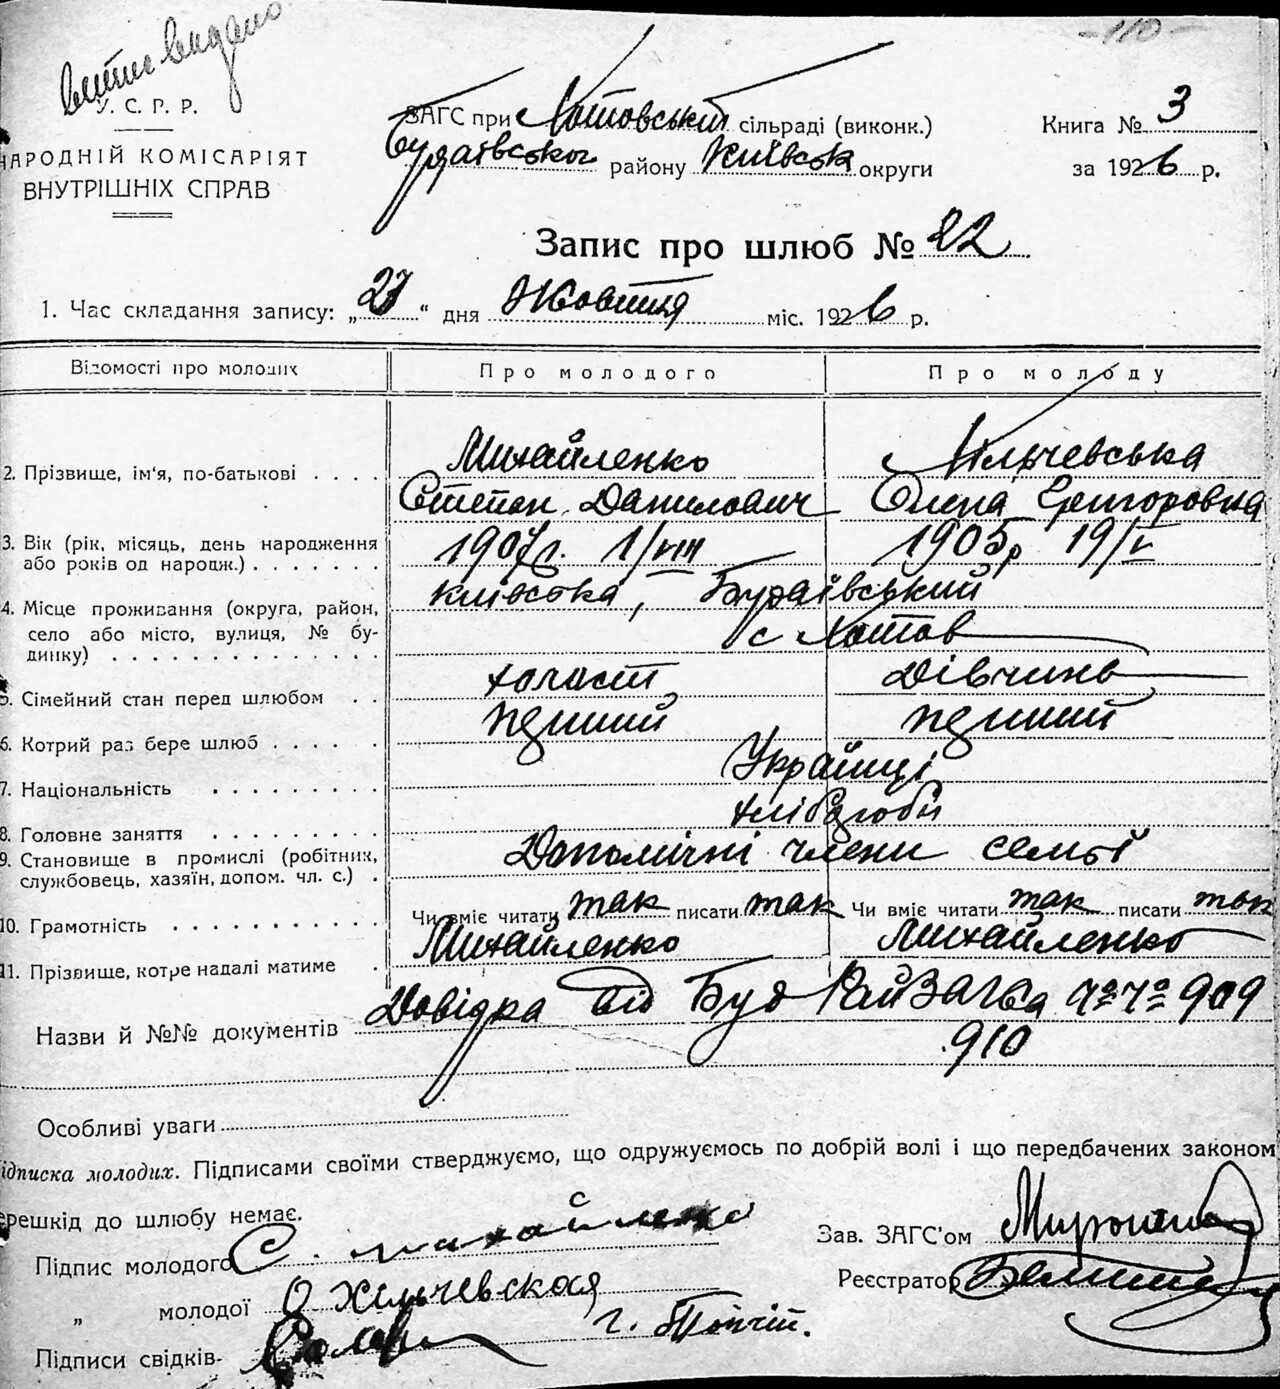 -110-
витис видано
У. С. Р. Р.
НАРОДНІЙ КОМІСАРІЯТ
ВНУТРІШНІХ СПРАВ
ЗАГС при Хотовський сільраді (виконк.)
Будаївської району Київськ округи
Книга № 3
за 1926 р.
Запис про шлюб № 22
1. Час складання запису: „27“ дня Жовтня міс. 1926 р.
Відомості про молодих Про молодого Про молоду
2. Прізвище, ім'я, по-батькові . . . . Михайленко Хільчевська
Степан Данилович Олена Григоровна
3. Вік (рік, місяць, день народження 1907 р. 1/VIII 1905 р 19/V
або років од народж.) . . . . . . .
4. Місце проживання (округа, район, Київска, Будаївський
село або місто, вулиця, № бу- с Хотов
динку) . . . . . . . . . . . . . .
5. Сімейний стан перед шлюбом . . холост Дівчина
6. Котрий раз бере шлюб . . . . . . перший перший
7. Національність . . . . . . . . . Українці
8. Головне заняття . . . . . . . . . хлібороби
9. Становище в промислі (робітник, Допомічні члени семьї
службовець, хазяїн, допом. чл. с.) .
10. Грамотність . . . . . . . . . . . Чи вміє читати так писати так Чи вміє читати так писати так
11. Прізвище, котре надалі матиме . Михайленко Михайленко
Назви й №№ документів Довідка від Буд РайЗАГСа №№ 909
910
Особливі уваги
Підписка молодих. Підписами своїми стверджуємо, що одружуємось по добрій волі і що передбачених законом
перешкід до шлюбу немає.
Підпис молодого С. Михайленко
Зав. ЗАГС'ом
„ молодої О Хільчевская
Реєстратор
Підписи свідків г.